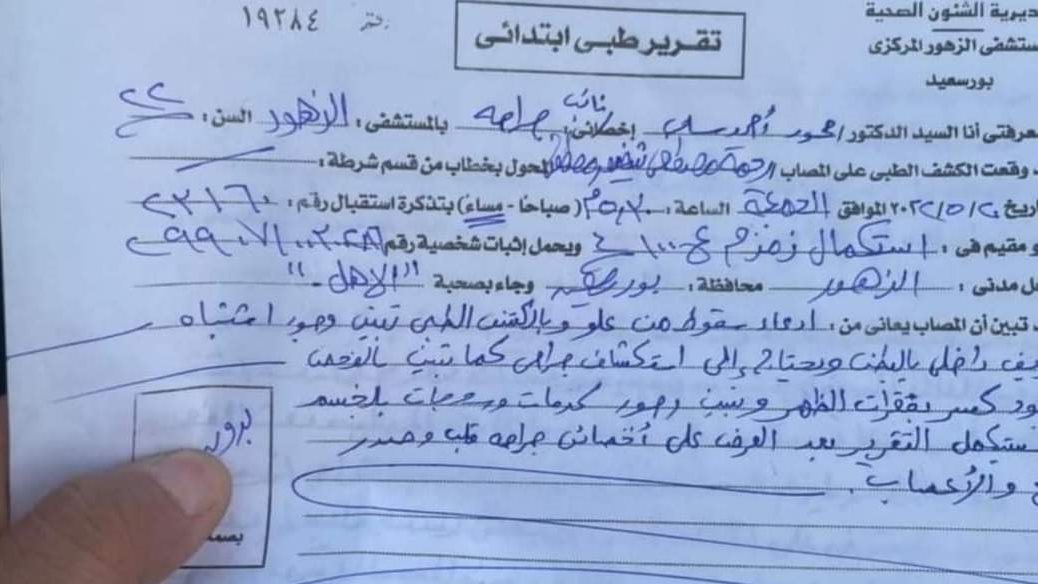 ديرية الشئون الصحية
ستشفى الزهور المركزى
بورسعيد
تقرير طبى ابتدائى
رقم ١٩٢٨٤
معرفتى أنا السيد الدكتور / محمود أحمد نائب إخصائى: جراحه بالمستشفى: الزهور السن: ٢٢
وقعت الكشف الطبى على المصاب رحمة مصطفى المحول بخطاب من قسم شرطة:
اريخ ٢٠٢٢/٥/٢٠ الموافق الجمعة الساعة: (صباحًا - مساءً) بتذكرة استقبال رقم: ٢٣١٦٠
و مقيم فى: استكمال زمزم ع ١٠٠ ويحمل إثبات شخصية رقم
ل مدنى: الزهور محافظة: بورسعيد وجاء بصحبة "الاهل"
تبين أن المصاب يعانى من: ادعاء سقوط من علو وبالكشف الطبى تبين وجود اشتباه
يف داخلى بالبطن ويحتاج إلى استكشاف جراحى كما تبين بالفحص
ود كسر بفقرات الظهر وتبين وجود كدمات وسحجات بالجسم
ستكمل التقرير بعد العرض على أخصائى جراحه قلب وصدر
خ والأعصاب.
بصمة